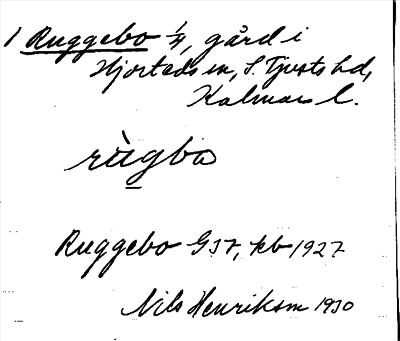 1 Ruggebo 1/4, gård i
Hjorteds sn, S. Tjusts hd,
Kalmar l.
rùgbo
Ruggebo G37, kb 1927
Nils Henrikson 1930